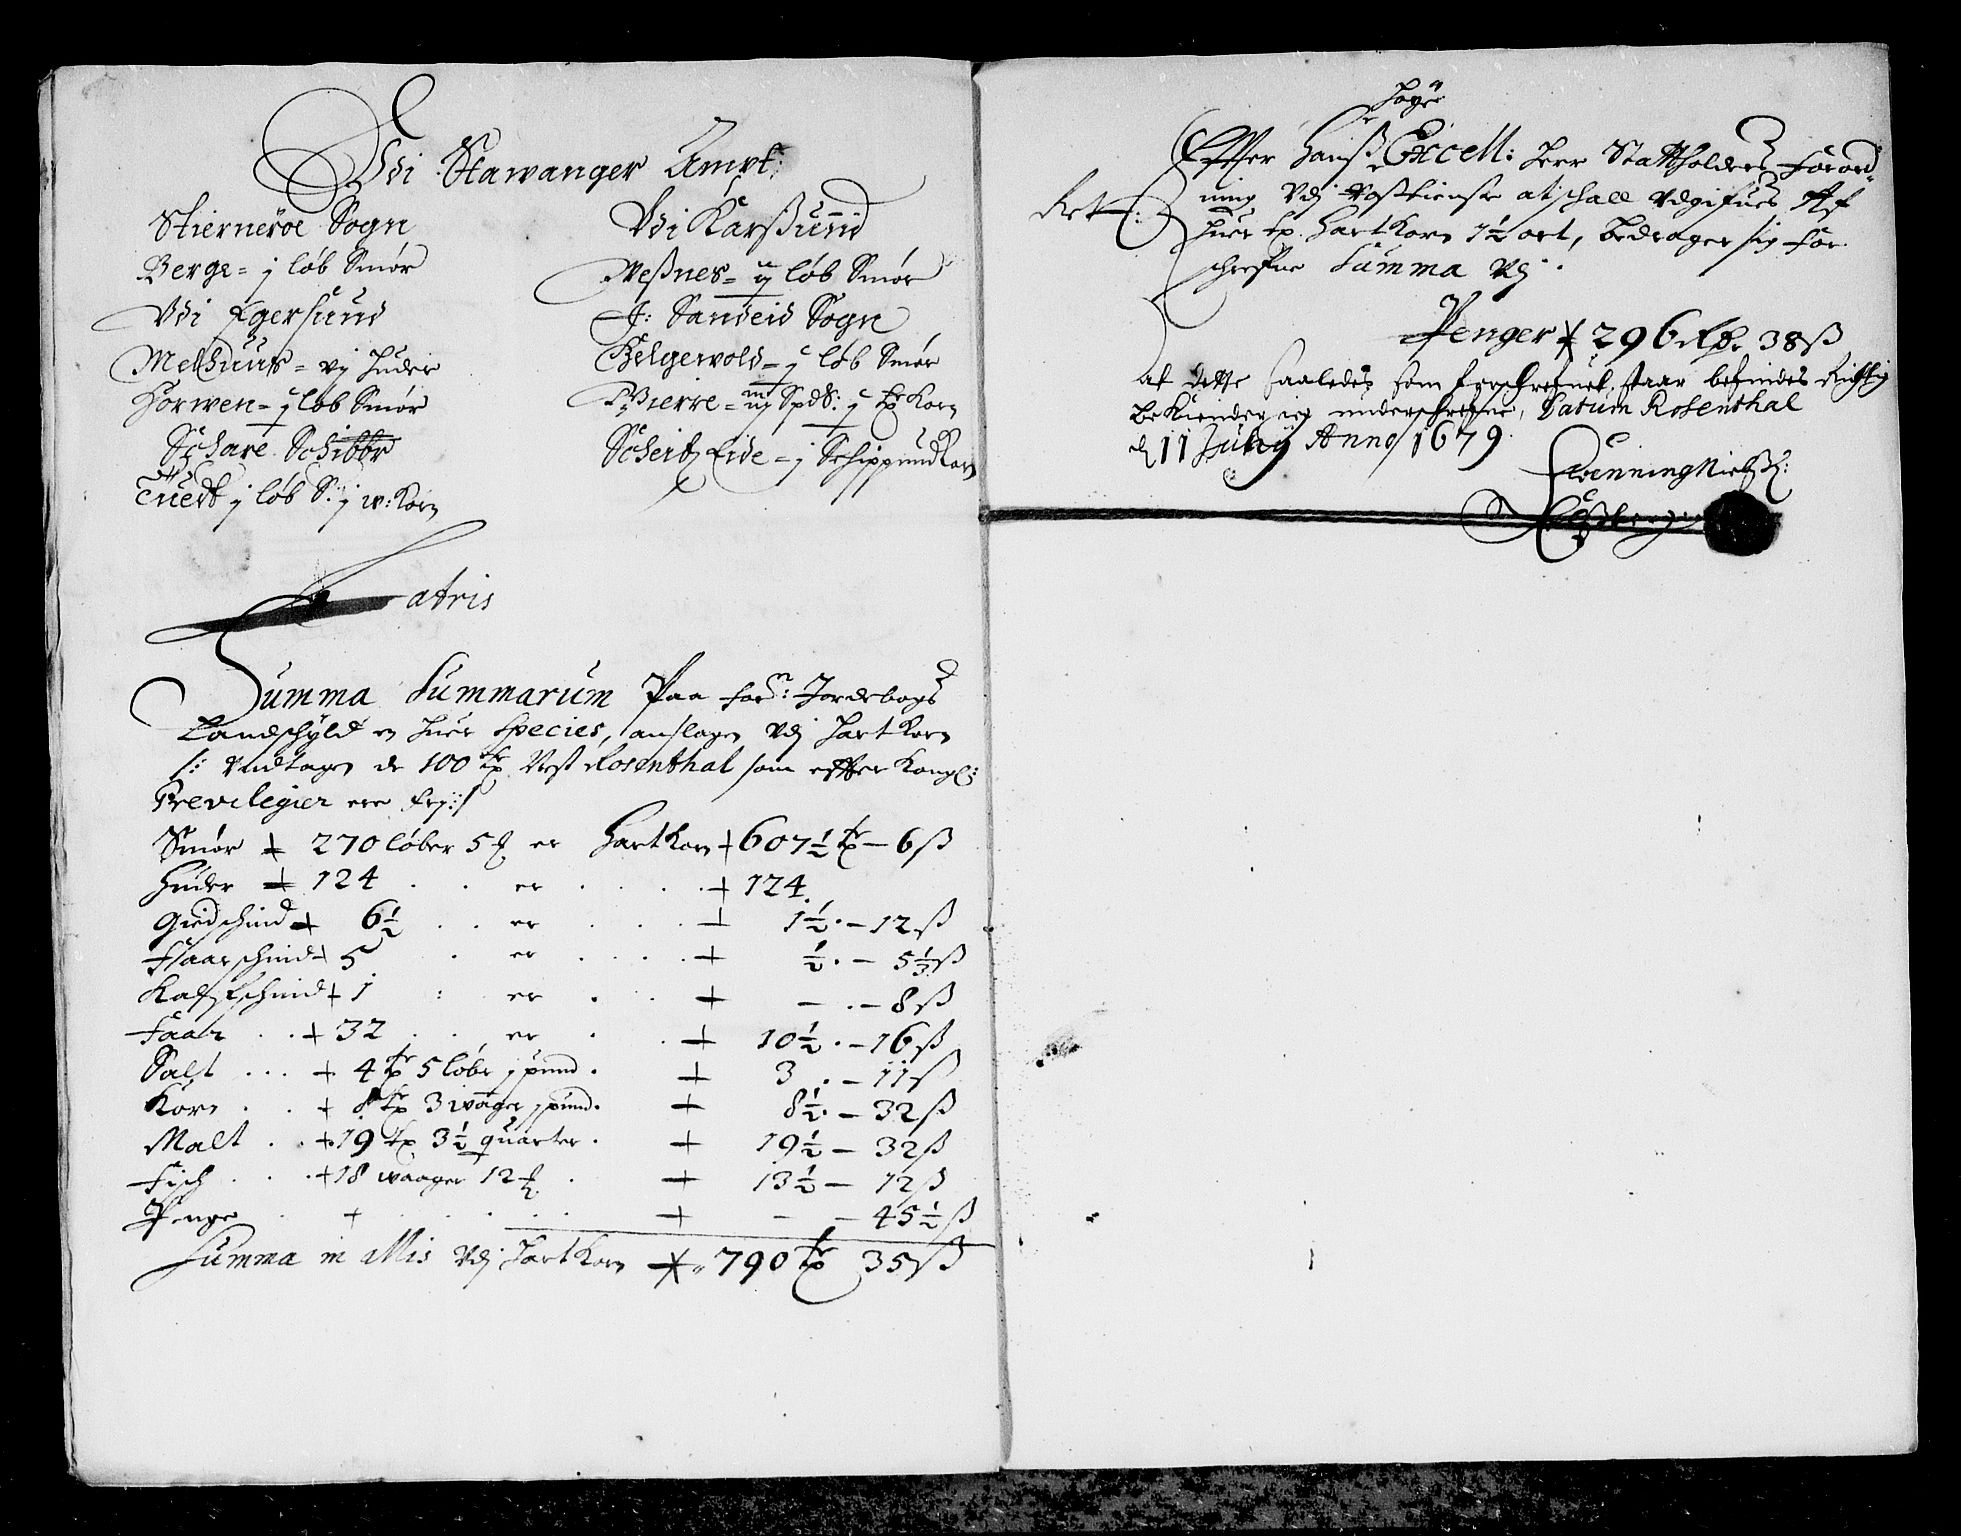 Udi Stawanger Ampt:
Stiernerøe Sogn
Berge = j løb Smør
Udi Egersund
Melhuus = vj huder
Horwen = j løb Smør
Schare Schibbr
j løb S: j w: Korn
Udi Karßund
Neßnes = ij løb Smør
J: Sandeid Sogn
Helgewold = j løb Smør
Bierre = iij Spd S: j tø Korn
Scheitz Eide = j Schippund Korn
Latris
Summa Summarum Paa forn: Jordebogs
Landschyld en huer Species, anslagen Udj hart Korn
/: undtagen de 100 tør Vest Rosenthal som effter Kongl:
Previlegier ere frj :/
Smør + 270 løber 5 er hart Korn + 607½ tør – 6 ß
Huder + 124 . . er . . . . + 124.
Giedschind + 6½ . . er . . . + 1½ . – 12 ß
Faarschind + 5 . er . . . . + ½ . – 5⅓ ß
Kalfschind + 1 : er . . + – . – 8 ß
Faar . . + 32 . . er . . + 10½ . – 16 ß
Salt . . . + 4 tør 5 løbe j pund . + 3 . – 11 ß
Korn . . + 8 tør 3 wager j pund . + 8½ . – 32 ß
Malt . . + 19 tø 3½ quarter . + 19½ – 32 ß
Fisch . . . + 18 waager 12 . + 13½ – 12 ß
Penge . + . . . . + – – 45½ ß
Summa in Alis Udj hart Korn + 790 tør 35 ß
høye
Effter Hanß Excell: Herr Stattholders Forord-
ning Udj Roßtienste at schall udgifues Af
huer tø. Hart Korn 1½ ort, bedrager sig for
schrefne Summa Udj
Penger + 296 Rdr. 38 ß
At dette saaledes som forschrefuet staar befindes Richtig
bekiender jeg underschrefne, Datum Rosenthal
d 11 Julij Anno 1679
Henning Nielß: